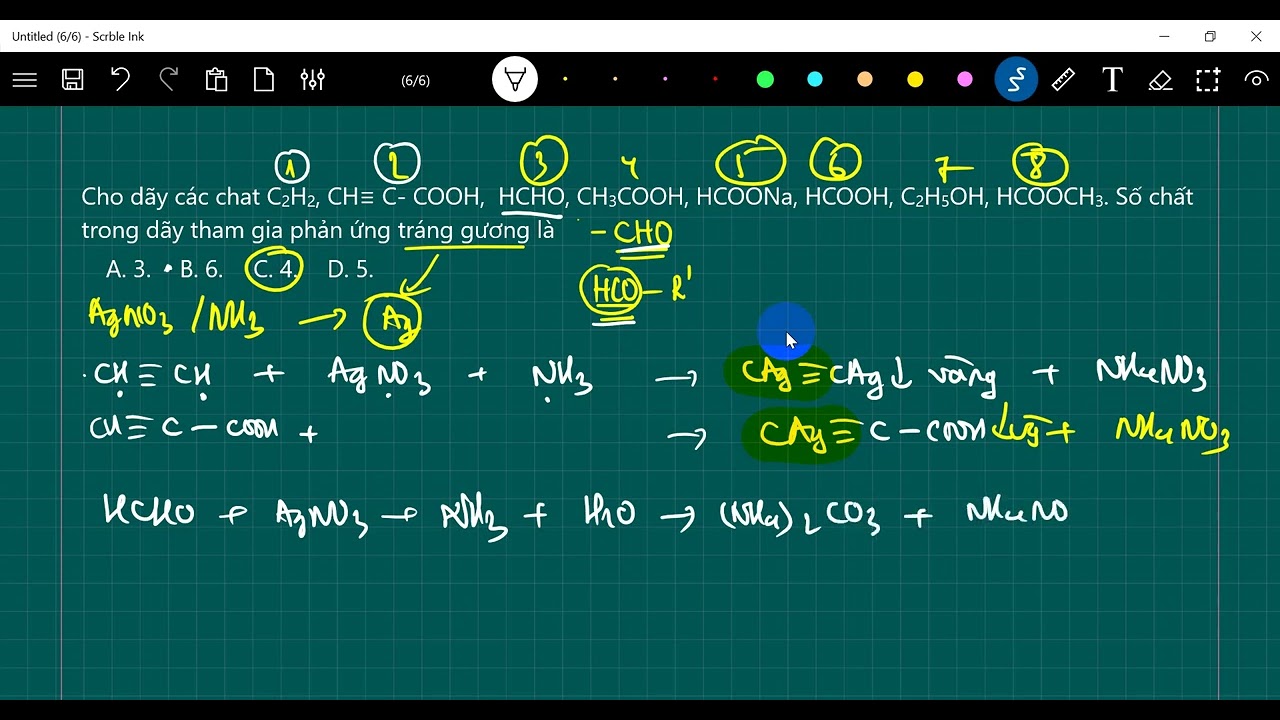 Untitled (6/6) - Scrble Ink
(6/6)
T
1 2 3 4 5 6 7 8
Cho dãy các chat C₂H₂, CH≡ C- COOH, HCHO, CH₃COOH, HCOONa, HCOOH, C₂H₅OH, HCOOCH₃. Số chất
trong dãy tham gia phản ứng tráng gương là - CHO
A. 3. • B. 6. C. 4. D. 5.
HCO - R'
AgNO₃ / NH₃ → Ag
CH ≡ CH + AgNO₃ + NH₃ → CAg ≡ CAg↓ vàng + NH₄NO₃
CH ≡ C - COOH + → CAg ≡ C - COOH ↓ + NH₄NO₃
HCHO + AgNO₃ + NH₃ + H₂O → (NH₄)₂CO₃ + NH₄NO